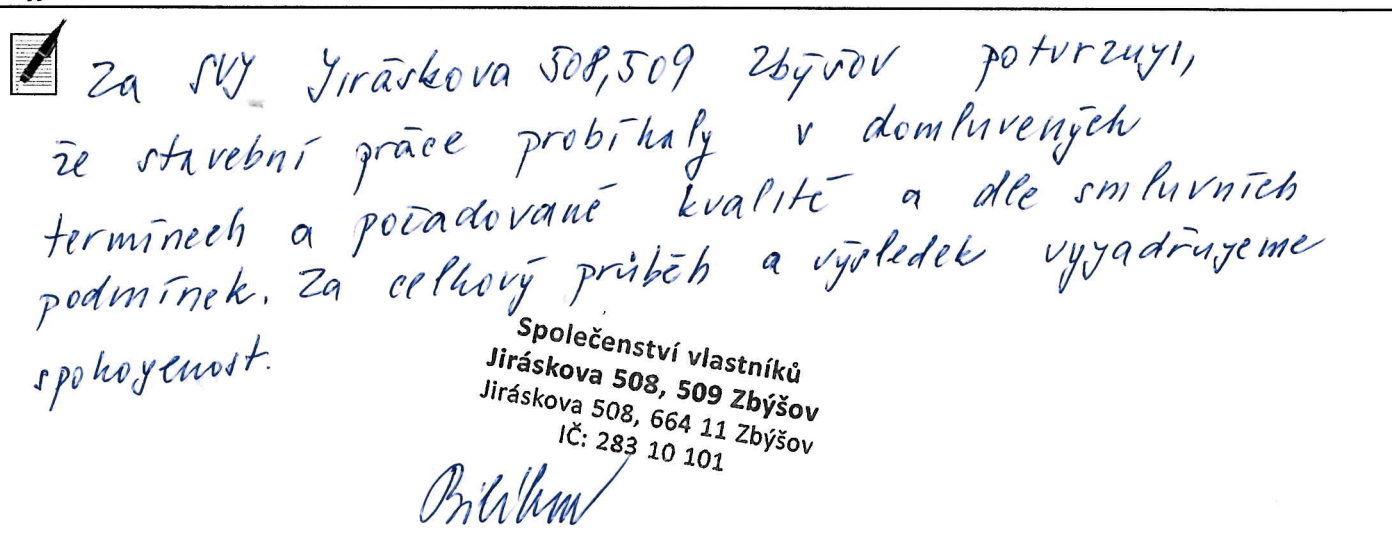 Za SVJ Jiráskova 508,509 Zbýšov potvrzuji,
že stavební práce probíhaly v domluvených
termínech a požadované kvalitě a dle smluvních
podmínek. Za celkový průběh a výsledek vyjadřujeme
spokojenost.
Společenství vlastníků
Jiráskova 508, 509 Zbýšov
Jiráskova 508, 664 11 Zbýšov
IČ: 283 10 101